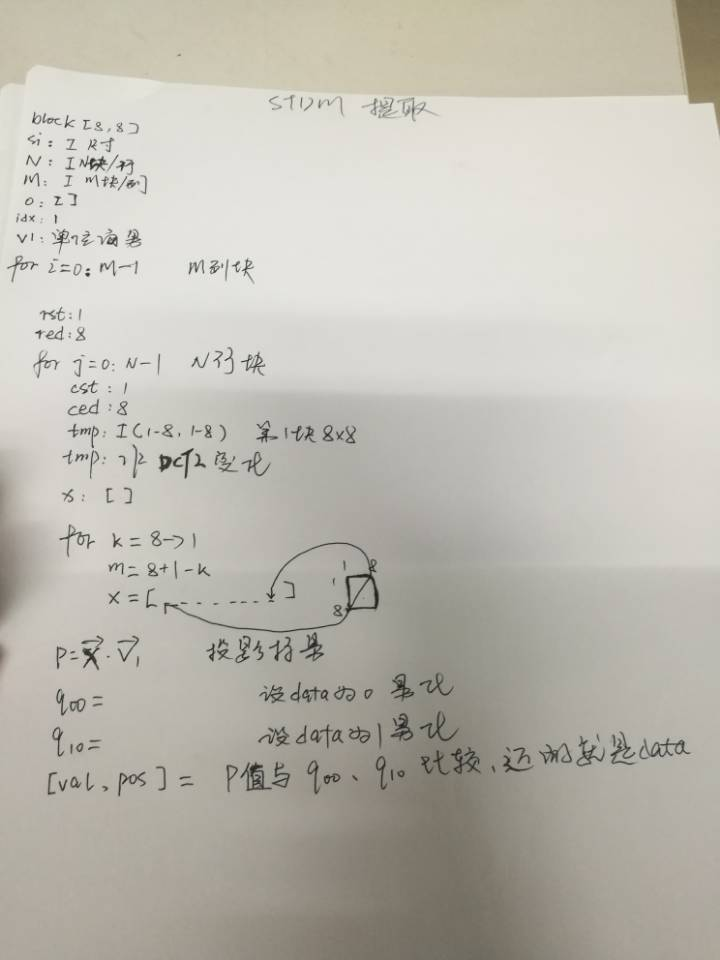 STDM 提取
block [8,8]
si: I 尺寸
N: I N块/行
M: I M块/列
o: []
idx: 1
V1: 单位向量
for i=0:M-1 M列块
rst:1
red:8
for j=0:N-1 N行块
cst:1
ced:8
tmp: I(1-8,1-8) 第1块8x8
tmp: DCT2变化
x: []
for k=8->1
m=8+1-k
x=[ ------ ]
1 8
1
8
P=X·V1 投影结果
q00= 设data为0 量化
q10= 设data为1 量化
[val、pos]= P值与q00、q10比较、近的就是data